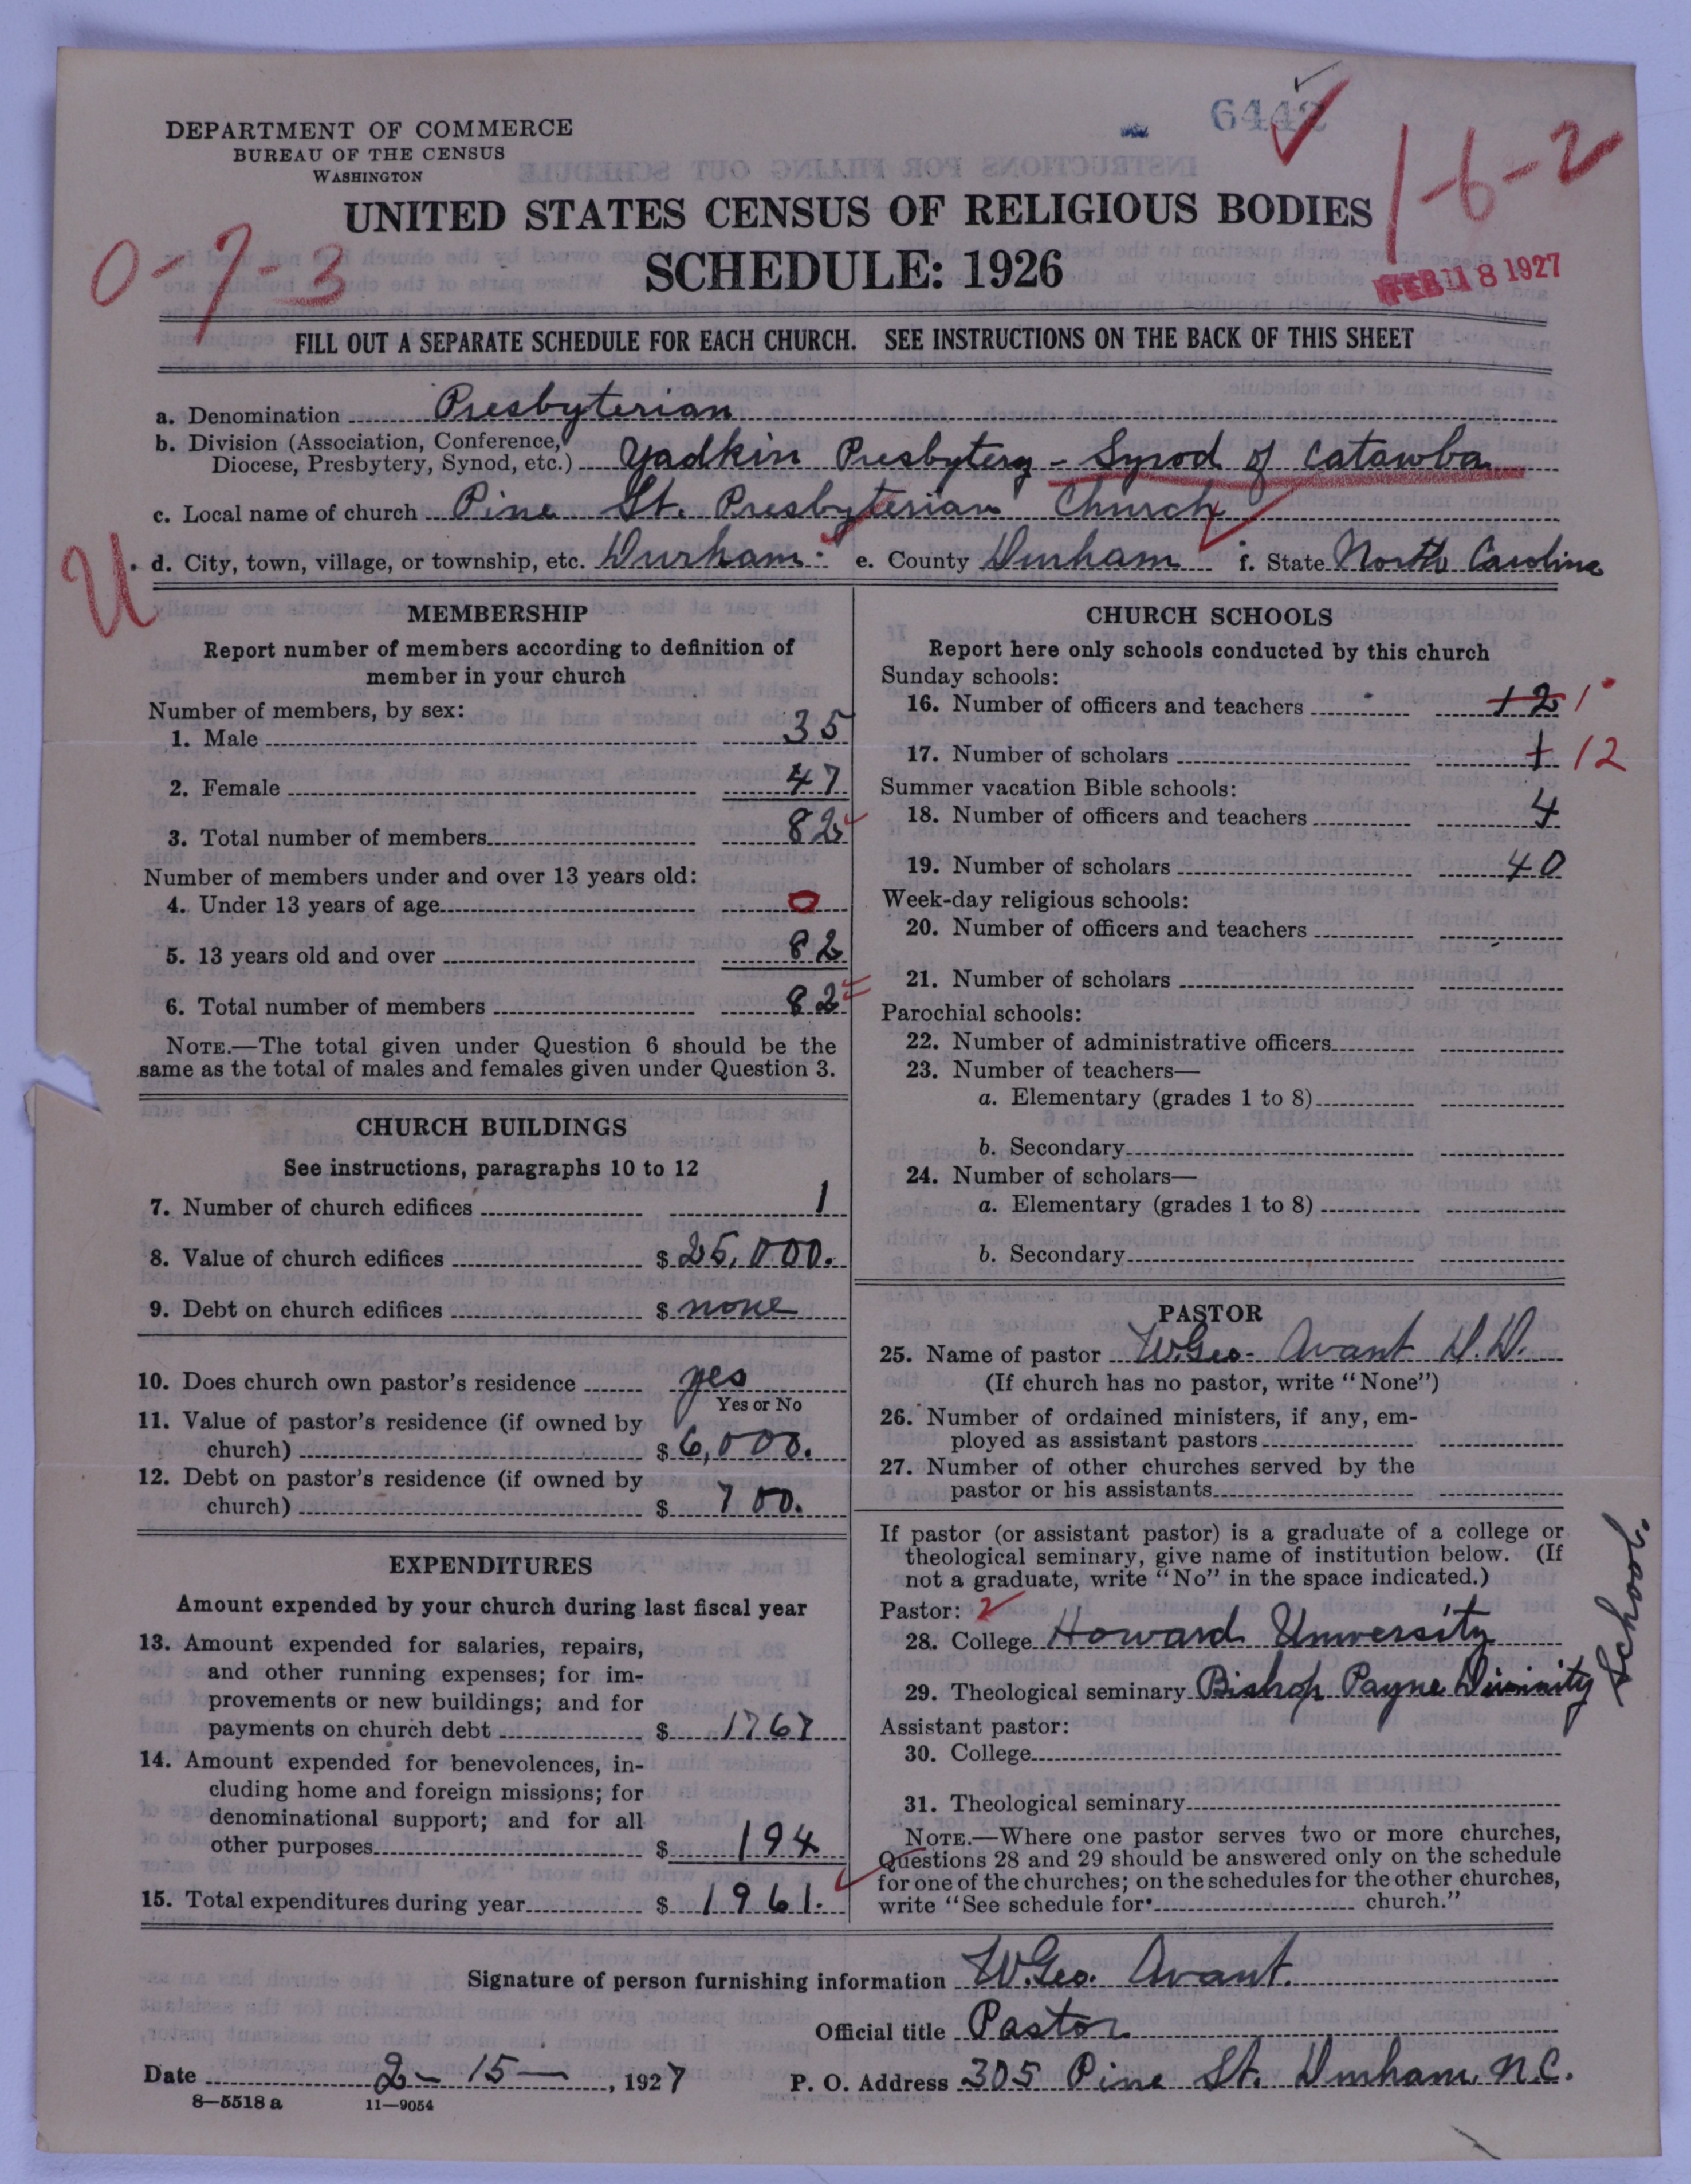 6442
DEPARTMENT OF COMMERCE
BUREAU OF THE CENSUS
WASHINGTON
1-6-2
UNITED STATES CENSUS OF RELIGIOUS BODIES
0-7-3
SCHEDULE: 1926
FEB 18 1927
FILL OUT A SEPARATE SCHEDULE FOR EACH CHURCH. SEE INSTRUCTIONS ON THE BACK OF THIS SHEET
a. Denomination Presbyterian
b. Division (Association, Conference,
Diocese, Presbytery, Synod, etc.) Yadkin Presbytery - Synod of Catawba
c. Local name of church Pine St. Presbyterian Church
U
d. City, town, village, or township, etc. Durham e. County Durham f. State North Carolina
MEMBERSHIP
Report number of members according to definition of
member in your church
Number of members, by sex:
1. Male 35
2. Female 47
3. Total number of members 82
Number of members under and over 13 years old:
4. Under 13 years of age 0
5. 13 years old and over 82
6. Total number of members 82
NOTE.—The total given under Question 6 should be the
same as the total of males and females given under Question 3.
CHURCH BUILDINGS
See instructions, paragraphs 10 to 12
7. Number of church edifices 1
8. Value of church edifices $ 25,000.
9. Debt on church edifices $ none
10. Does church own pastor's residence yes
Yes or No
11. Value of pastor's residence (if owned by
church) $ 6,000.
12. Debt on pastor's residence (if owned by
church) $ 700.
EXPENDITURES
Amount expended by your church during last fiscal year
13. Amount expended for salaries, repairs,
and other running expenses; for im-
provements or new buildings; and for
payments on church debt $ 1767
14. Amount expended for benevolences, in-
cluding home and foreign missions; for
denominational support; and for all
other purposes $ 194
15. Total expenditures during year $ 1961.
CHURCH SCHOOLS
Report here only schools conducted by this church
Sunday schools:
16. Number of officers and teachers 12 1
17. Number of scholars 1 12
Summer vacation Bible schools:
18. Number of officers and teachers 4
19. Number of scholars 40
Week-day religious schools:
20. Number of officers and teachers
21. Number of scholars
Parochial schools:
22. Number of administrative officers
23. Number of teachers—
a. Elementary (grades 1 to 8)
b. Secondary
24. Number of scholars—
a. Elementary (grades 1 to 8)
b. Secondary
PASTOR
25. Name of pastor W. Geo. Avant D.D.
(If church has no pastor, write "None")
26. Number of ordained ministers, if any, em-
ployed as assistant pastors
27. Number of other churches served by the
pastor or his assistants
If pastor (or assistant pastor) is a graduate of a college or
theological seminary, give name of institution below. (If
not a graduate, write "No" in the space indicated.)
Pastor: 2
28. College Howard University
29. Theological seminary Bishop Payne Divinity School.
Assistant pastor:
30. College
31. Theological seminary
NOTE.—Where one pastor serves two or more churches,
Questions 28 and 29 should be answered only on the schedule
for one of the churches; on the schedules for the other churches,
write "See schedule for church."
Signature of person furnishing information W. Geo. Avant.
Official title Pastor
Date 2-15-, 1927 P. O. Address 305 Pine St. Durham, N.C.
8—5518 a 11—9054